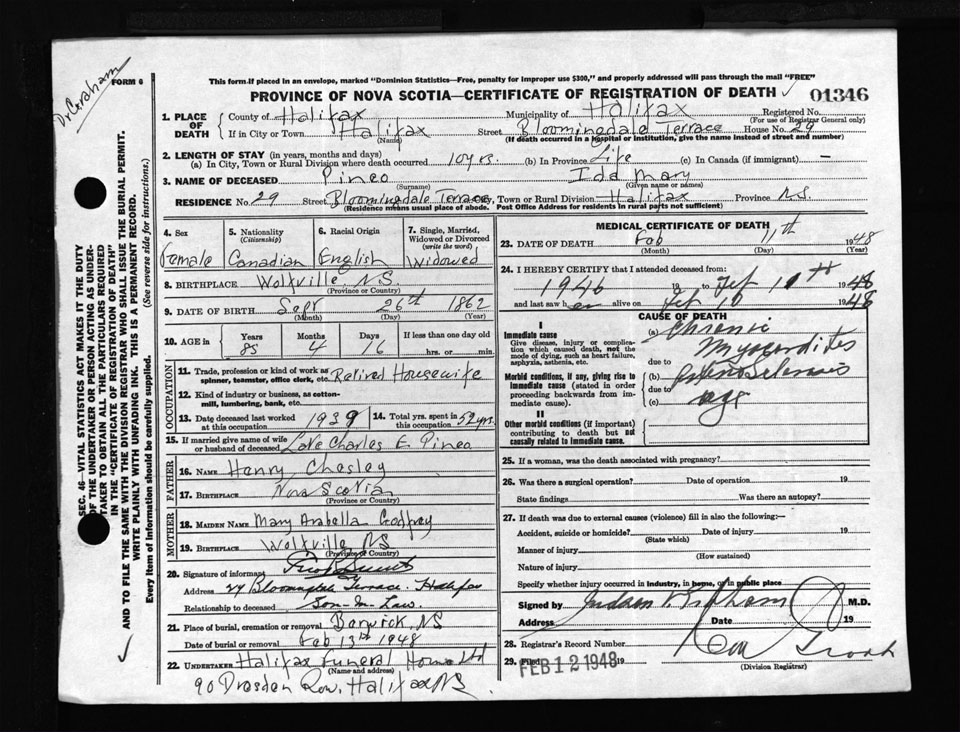 Dr Graham
FORM 6
This form if placed in an envelope, marked "Dominion Statistics—Free, penalty for improper use $300," and properly addressed will pass through the mail "FREE"
PROVINCE OF NOVA SCOTIA—CERTIFICATE OF REGISTRATION OF DEATH
01346
1. PLACE OF DEATH
County of Halifax Municipality of Halifax Registered No.
(For use of Registrar General only)
If in City or Town Halifax Street Bloomingdale Terrace House No. 29
(Name) (If death occurred in a hospital or institution, give the name instead of street and number)
2. LENGTH OF STAY (in years, months and days)
(a) In City, Town or Rural Division where death occurred 10 yrs. (b) In Province Life (c) In Canada (if immigrant) —
3. NAME OF DECEASED Pineo Ida Mary
(Surname) (Given name or names)
RESIDENCE No. 29 Street Bloomingdale Terrace City, Town or Rural Division Halifax Province N.S.
(Residence means usual place of abode. Post Office Address for residents in rural parts not sufficient)
4. Sex
Female
5. Nationality
(Citizenship)
Canadian
6. Racial Origin
English
7. Single, Married, Widowed or Divorced
(write the word)
Widowed
8. BIRTHPLACE Wolfville, N.S.
(Province or Country)
9. DATE OF BIRTH Sept 26th 1862
(Month) (Day) (Year)
10. AGE in Years Months Days If less than one day old
85 4 16 hrs. or min.
OCCUPATION
11. Trade, profession or kind of work as
spinner, teamster, office clerk, etc. Retired Housewife
12. Kind of industry or business, as cotton-
mill, lumbering, bank, etc.
13. Date deceased last worked
at this occupation 1939
14. Total yrs. spent in
this occupation 52 yrs.
15. If married give name of wife
or husband of deceased Late Charles E. Pineo
FATHER
16. NAME Henry Chesley
17. BIRTHPLACE Nova Scotia
(Province or Country)
MOTHER
18. MAIDEN NAME Mary Arabella Godfrey
19. BIRTHPLACE Wolfville NS
(Province or Country)
20. Signature of informant
Address 29 Bloomingdale Terrace. Halifax
Relationship to deceased Son-In-Law.
21. Place of burial, cremation or removal Berwick, NS
Date of burial or removal Feb 13th 1948
22. UNDERTAKER Halifax Funeral Home Ltd
(Name and address)
90 Dresden Row, Halifax NS.
MEDICAL CERTIFICATE OF DEATH
23. DATE OF DEATH Feb 11th 1948
(Month) (Day) (Year)
24. I HEREBY CERTIFY that I attended deceased from:
1946 19 to Feb 11th 1948
and last saw her alive on Feb 10 1948
CAUSE OF DEATH
I
Immediate cause
Give disease, injury or complica-
tion which caused death, not the
mode of dying, such as heart failure,
asphyxia, asthenia, etc.
(a) Chronic
Myocarditis
due to
Morbid conditions, if any, giving rise to
immediate cause (stated in order
proceeding backwards from im-
mediate cause).
(b)
due to
(c) age
II
Other morbid conditions (if important)
contributing to death but not
causally related to immediate cause.
25. If a woman, was the death associated with pregnancy?
26. Was there a surgical operation? Date of operation 19
State findings Was there an autopsy?
27. If death was due to external causes (violence) fill in also the following:—
Accident, suicide or homicide? Date of injury 19
(State which)
Manner of injury
(How sustained)
Nature of injury
Specify whether injury occurred in industry, in home, or in public place
Signed by Graham M.D.
Address Date 19
28. Registrar's Record Number
29. Filed FEB 12 1948 19
(Division Registrar)
SEC. 46—VITAL STATISTICS ACT MAKES IT THE DUTY
OF THE UNDERTAKER OR PERSON ACTING AS UNDER-
TAKER TO OBTAIN ALL THE PARTICULARS REQUIRED
IN THE "CERTIFICATE OF REGISTRATION OF DEATH"
AND TO FILE THE SAME WITH THE DIVISION REGISTRAR WHO SHALL ISSUE THE BURIAL PERMIT.
WRITE PLAINLY WITH UNFADING INK. THIS IS A PERMANENT RECORD.
Every item of information should be carefully supplied. (See reverse side for instructions.)